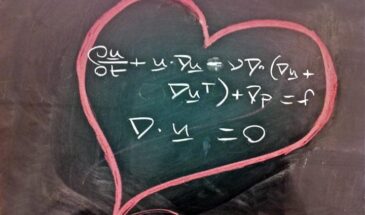 ∂u̲/∂t + u̲·∇u̲ - ν∇·(∇u̲ +
∇u̲ᵀ) + ∇p = f
∇·u̲ = 0